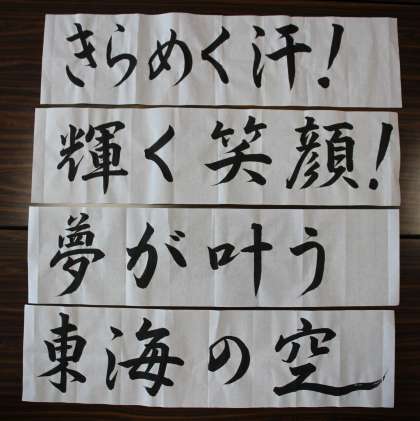 きらめく汗!
輝く笑顔!
夢が叶う
東海の空